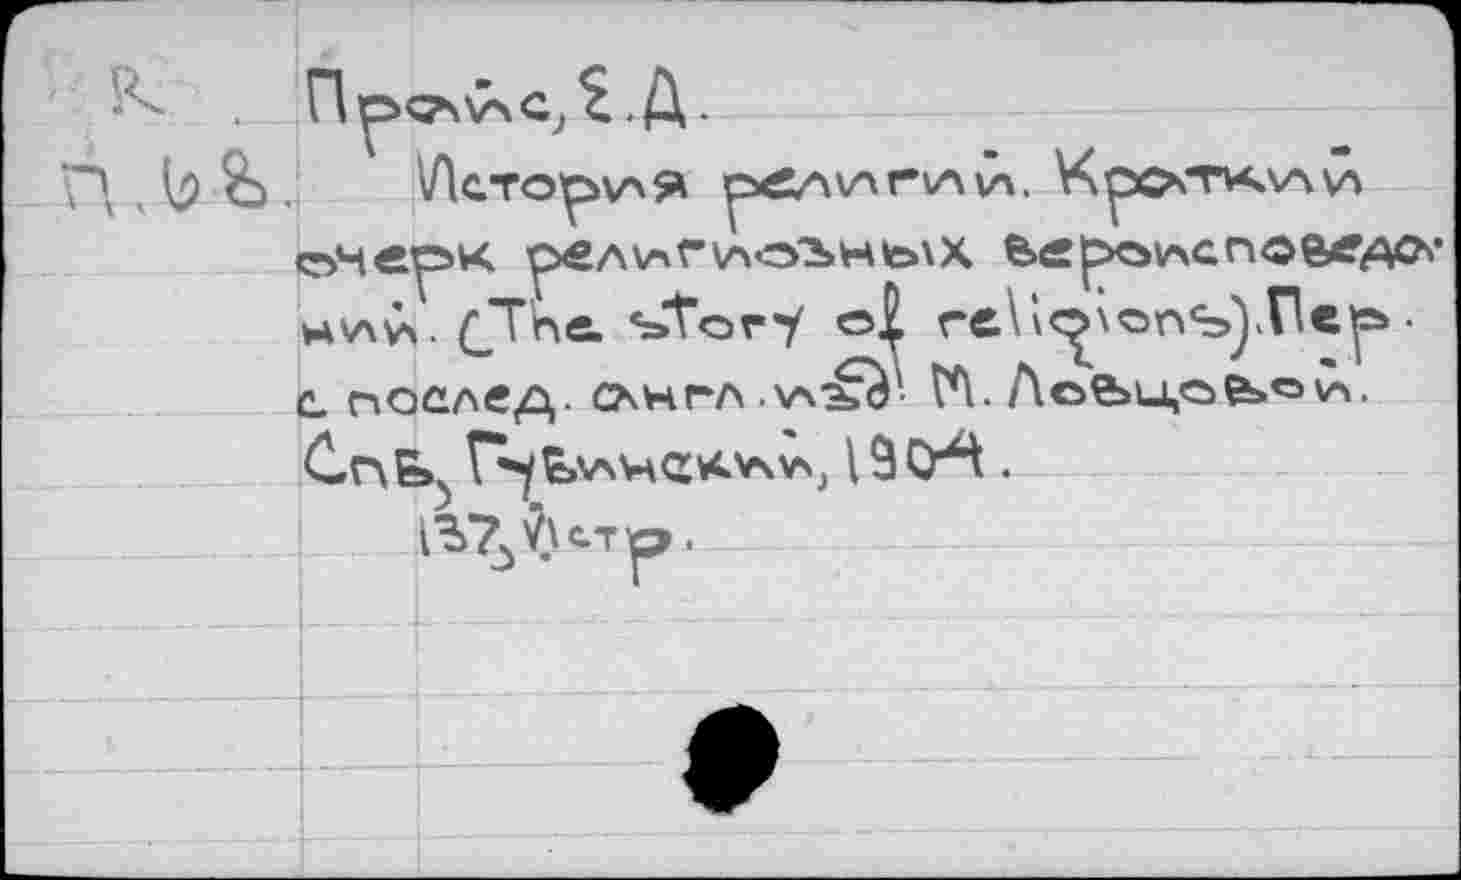 К.
П.68.
Прайс, Е.Д.
История религий. Краткий
очерк религиозных вероисповеда-
ний. (The story of religions). Пер.
с послед. англ. изд. М. Ловцовой.
СПБ, Губинский, 1904.
137, VI стр.